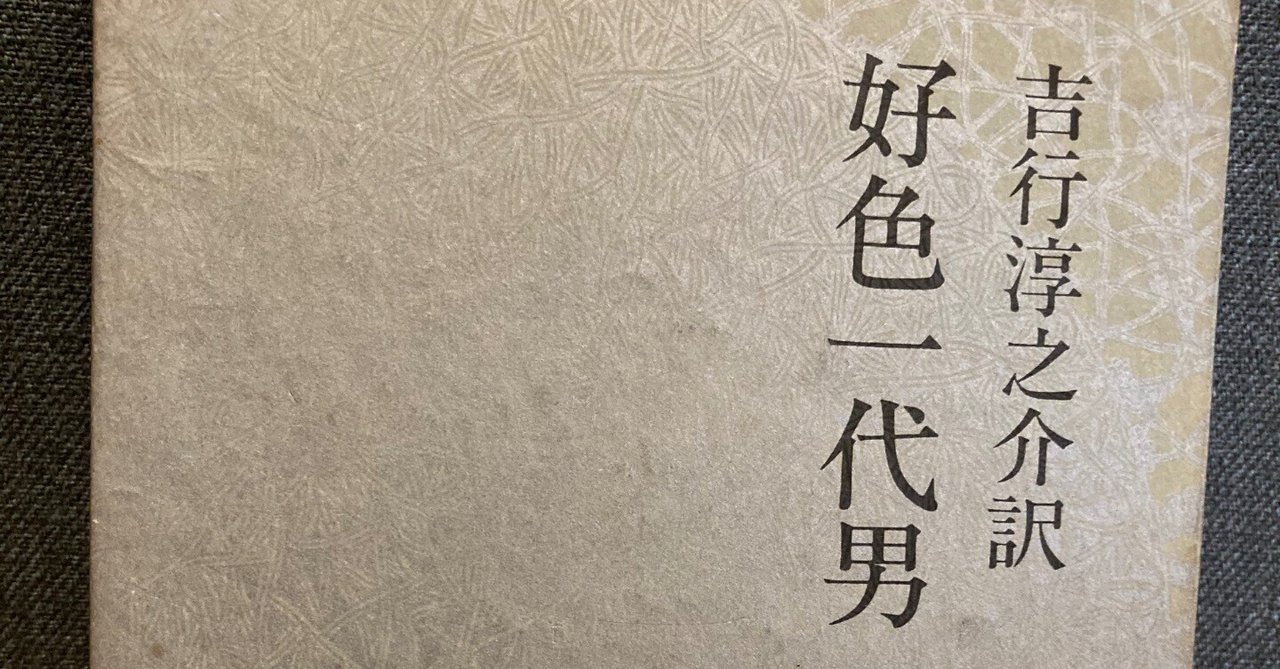 吉行淳之介訳
好色一代男